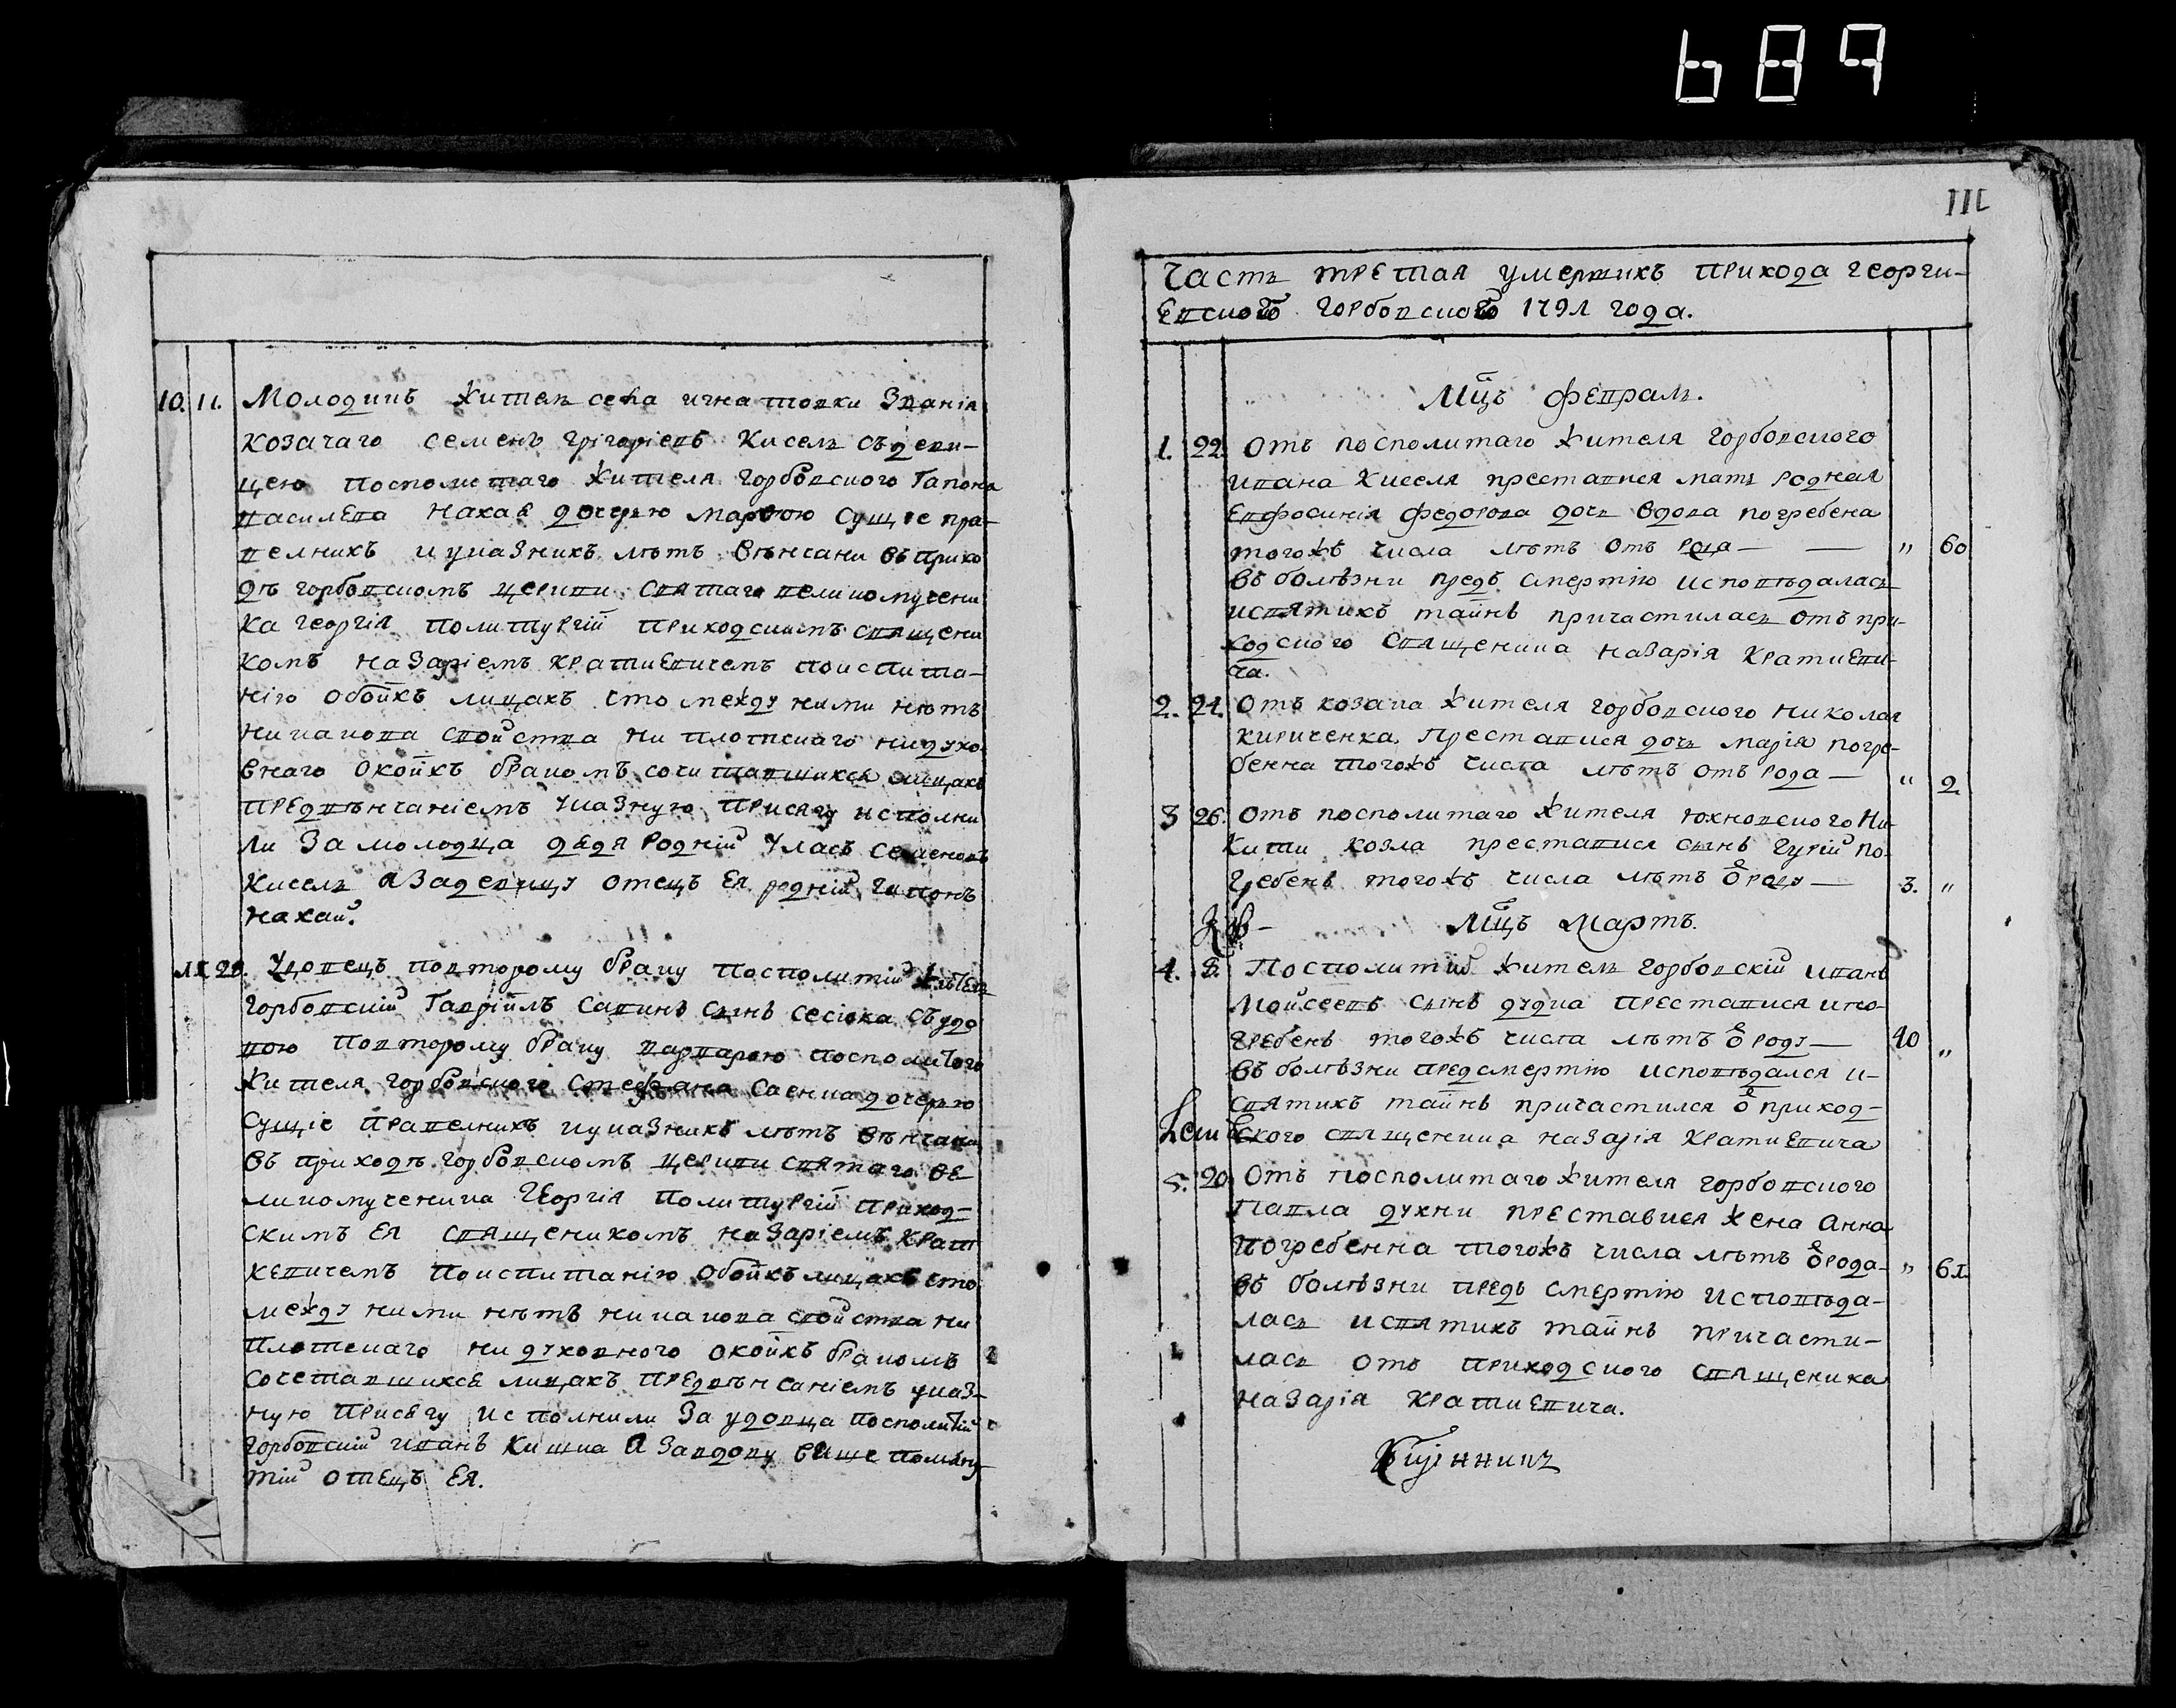 689
10. 11. Молодикъ житель села игнатовки звания
козачаго семенъ григориевъ кисель съ деви-
цею посполитаго жителя горбовского гапона
василева накая дочерю марθою сущие пра-
велнихъ и указнихъ лѣтъ вѣнчани въ прихо
дѣ горбовскомъ церкви святаго великомучени
ка георгия по литургий приходскимъ священи
комъ назариемъ краткевичемъ по испита-
нию обойхъ лицахъ что между ними нѣтъ
ни какова свойства ни плотскаго ни духо
внаго о койхъ бракомъ сочитавшихся лицахъ
предвѣнчаниемъ указную присягу исполни
ли за молодца дядя родний уласъ семеновъ
кисель а за девицу отецъ ея родний гапонъ
накай.
11. 29. Удовецъ по второму браку посполитий житель
горбовский гаврийлъ савинъ синъ сесюка съ удо
вою по второму браку варварою посполитого
жителя горбовского стефана саенка дочерю
сущие правелнихъ и указнихъ лѣтъ вѣнчани
въ приходѣ горбовскомъ церкви святаго ве
ликомученика георгия по литургий приход-
скимъ ея священикомъ назариемъ крат
кевичемъ по испитанию обойхъ лицахъ что
между ними нѣтъ ни какова свойства ни
плотскаго ни духовного о койхъ бракомъ
сочетавшихся лицахъ предвѣнчаниемъ указ-
ную присягу исполнили за удовца посполитий
горбовский иванъ кишка а за вдову више помяну
тий отецъ ея.
III
Часть третая умершихъ прихода георги-
евского горбовского 1791 года.
Мцъ февраль.
1. 22. Отъ посполитаго жителя горбовского
ивана киселя преставися мать родная
евфросиния федорова дочь вдова погребена
тогожъ числа лѣтъ отъ рода — — „ 60
въ болѣзни предъ смертию исповѣдалась
и святихъ тайнъ причастилась отъ при-
ходского священика назария краткеви-
ча.
2. 24. Отъ козака жителя горбовского николая
кириченка преставися дочь мария погре-
бенна тогожъ числа лѣтъ отъ рода — „ 2
3 26. Отъ посполитаго жителя юхновского Ни-
кити козла преставися синъ гурий по-
гребенъ тогожъ числа лѣтъ ѿ роду — 3. „
Мцъ мартъ.
4. 8. Посполитий житель горбовский иванъ
мойсеевъ синъ дудка преставися и по-
гребенъ тогожъ числа лѣтъ ѿ роду — 40 „
въ болѣзни предсмертию исповѣдался и
святихъ тайнъ причастился ѿ приход-
ского священика назария краткевича
5. 20 Отъ посполитаго жителя горбовского
павла духни преставися жена анна
погребенна тогожъ числа лѣтъ ѿ рода- „ 61.
въ болѣзни предъ смертию исповѣда-
лась и святихъ тайнъ причасти-
лась отъ приходского священика
назария краткевича.